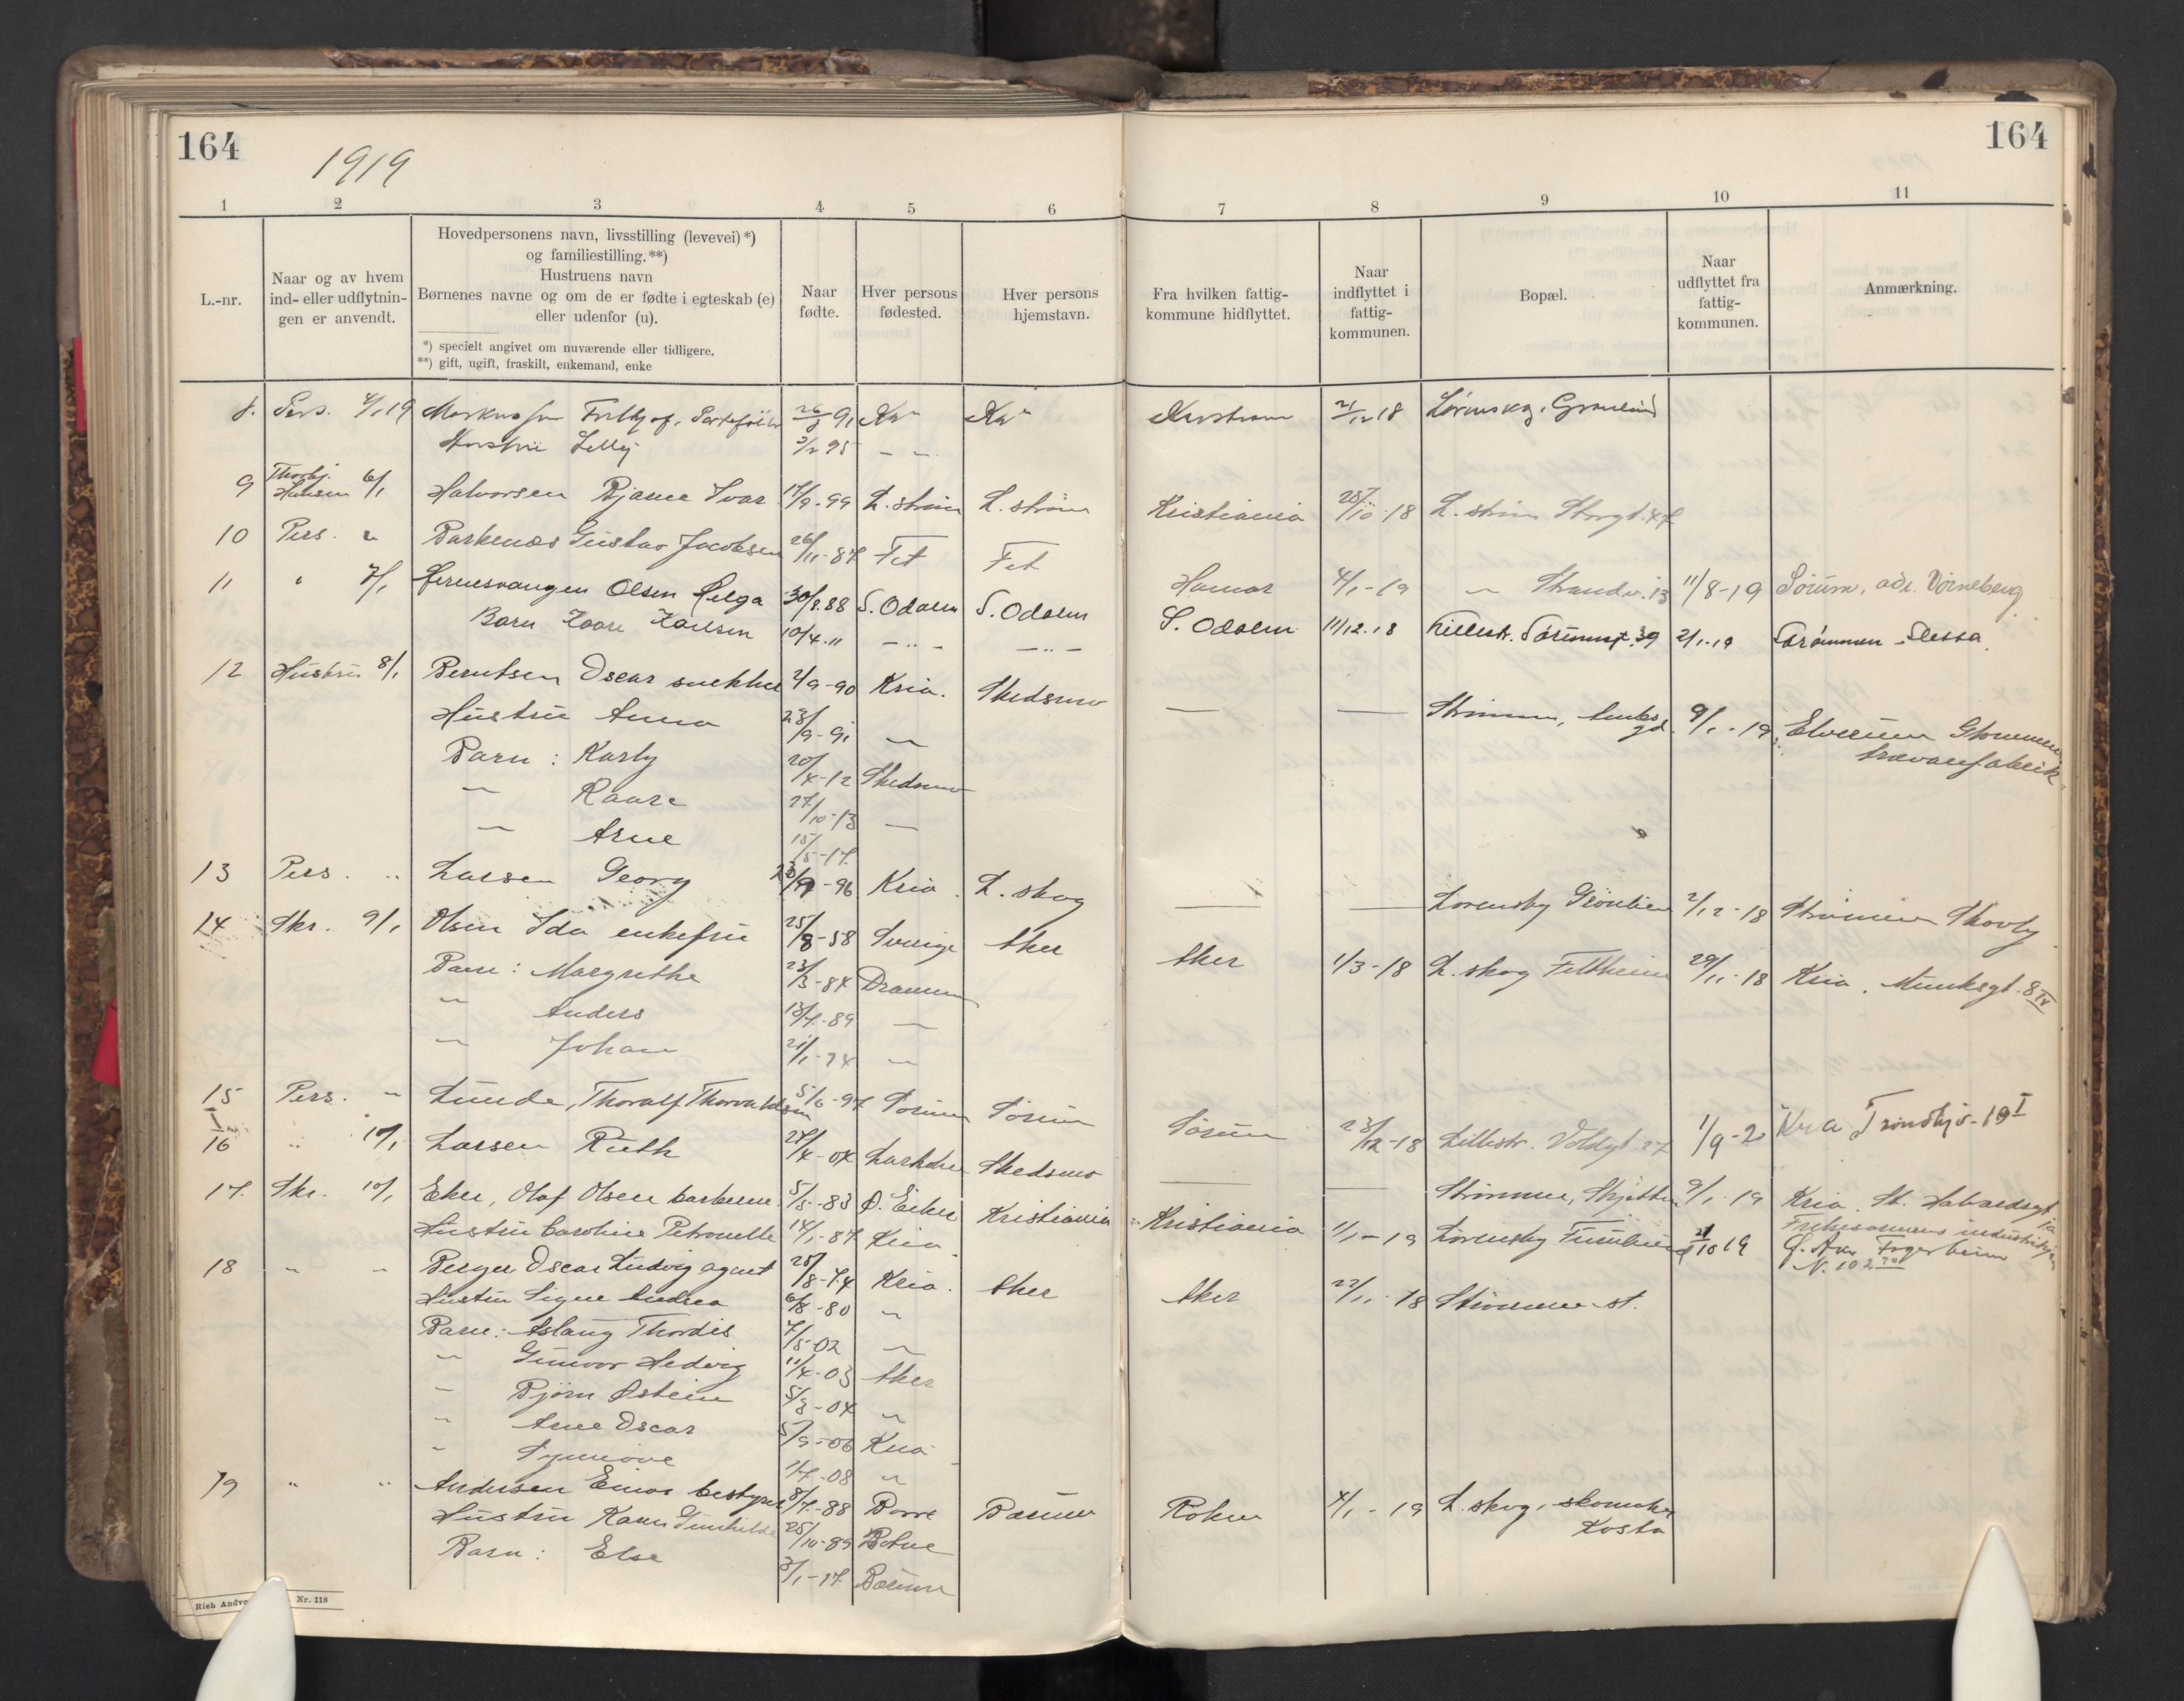 164
1919
164
1 2 3 4 5 6 7 8 9 10 11
L.-nr.
Naar og av hvem
ind- eller udflytnin-
gen er anvendt.
Hovedpersonens navn, livsstilling (levevei)*)
og familiestilling.**)
Hustruens navn
Børnenes navne og om de er fødte i egteskab (e)
eller udenfor (u).
*) specielt angivet om nuværende eller tidligere.
**) gift, ugift, fraskilt, enkemand, enke
Naar
fødte.
Hver persons
fødested.
Hver persons
hjemstavn.
Fra hvilken fattig-
kommune hidflyttet.
Naar
indflyttet i
fattig-
kommunen.
Bopæl.
Naar
udflyttet fra
fattig-
kommunen.
Anmærkning.
8. Pers. 4/1 19 Markussen Frithjof, 26/8 91 Kra Kra 21/12 18 Lørenskog,
Hustru Lilly 3/2 95 - -
9 Thorbj. Hansen 6/1 Halvorsen Bjarne Ivar 17/9-99 L.strøm L.strøm Kristiania 28/10-18 L.strøm Storgt. 47
10 Pers. " Barkenæs Gustav Jacobsen 26/11-87 Fet Fet Hamar 4/1-19 " Strandv. 13 11/8-19 Sørum, adr. Vørneberg
11 " 7/1 Olsen Helga 30/8.88 S. Odalen S. Odalen S. Odalen 11/12.18 Lillestr. Sørumsgt. 39 2/1.19 Strømmen
Barn Kaare Karlsen 10/4.11 - " - - " -
12 Hustru 8/1 Berntsen Oscar snekker 2/9-90 Kria. Skedsmo — — Strømmen, 9/1-19 Elverum Glommen
trævarefabrik
Hustru Anna 28/9-91 "
Barn: Karly 20/4-12 Skedsmo
" Kaare 27/10-13 "
" Arne 15/5-17
13 Pers. " Larsen Georg 23/9-96 Kria. L.skog — — Lørensby 2/12-18 Strømmen Skovly
14 Skr. 9/1 Olsen Ida enkefru 25/8-58 Sverige Aker Aker 1/3-18 L.skog Feltheim 29/11-18 Kria, Munksgt. 8 IV
Barn: Margrethe 23/3-84 Drammen
" Anders 13/7-89 "
" Johan 21/1-94 "
15 Pers. " Lunde, Thoralf Thorvaldsen 5/6-97 Sørum Sørum Sørum 23/12-18 Lillestr. Voldgt. 27 1/9-20 Kra Trondhj. 19 I
16 " 10/1 Larsen Ruth 27/4-04 Skedsmo — — Strømmen, Skjetten 9/1-19 Kria. St. Halvardsgt
17. Skr. 10/1 Eker, Olaf Olsen barberer 5/5-83 Ø. Eiker Kristiania Kristiania 1/1-19 Lørensby 10 19
Hustru Caroline Petronelle 14/1-87 Kria.
18 " " Berger Oscar Ludvig agent 28/8-74 Kria. Aker Aker 22/11-18 Strømmen st.
Hustru Signe Andrea 6/8-80 "
Barn: Aslaug Thordis 7/5-02 "
" Gunvor Hedvig 11/4-03 Aker
" Bjørn Østein 5/3-04 "
" Arne Oscar 5/9-06 Kria
" Synnøve 1/7-08 "
19 " " Andersen Einar bestyrer 8/7-88 Borre Bærum Røken 4/1-19 L.skog, skomaker
Kosta
Hustru Karen Gunhilde 25/10-89 Botne
Barn: Else 3/1-17 Bærum
Nr. 118